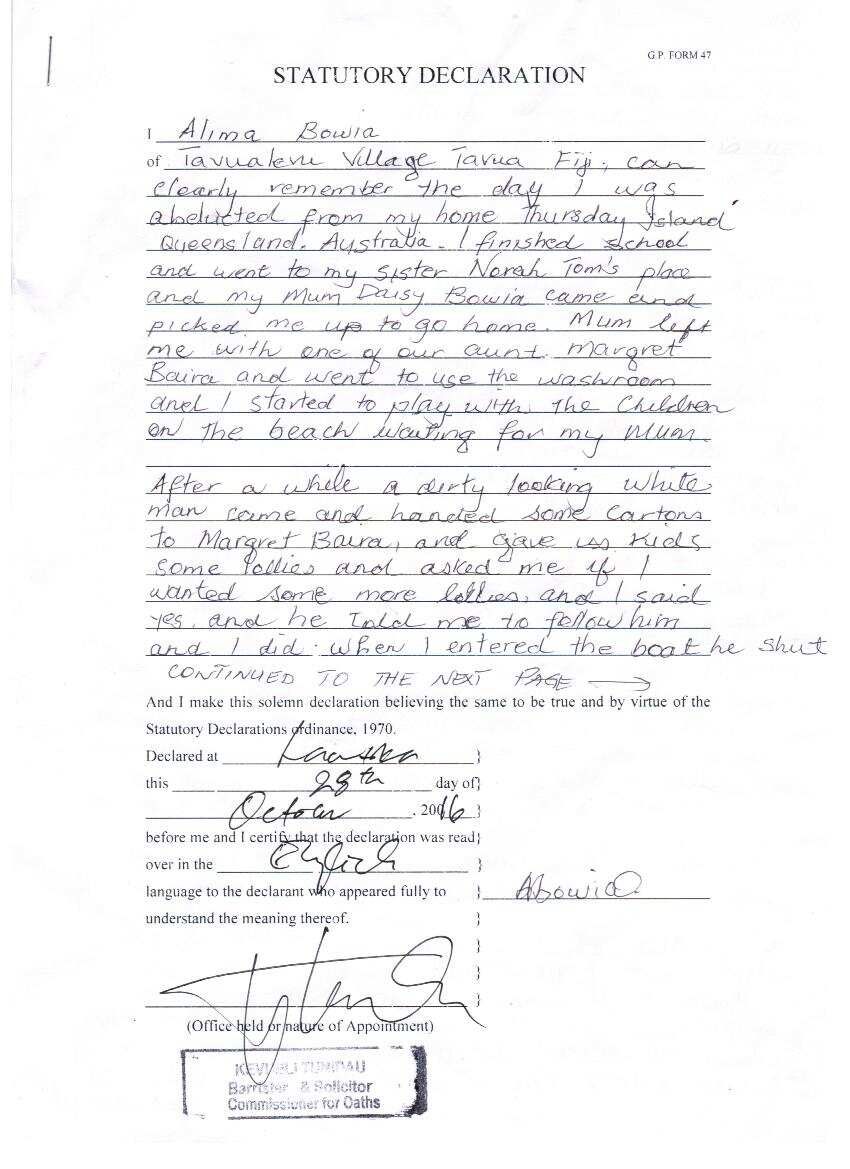 G.P. FORM 47
STATUTORY DECLARATION
I Alima Bowia
of Tavualevu Village Tavua Fiji, can
clearly remember the day I was
abducted from my home Thursday Island
Queensland. Australia. I finished school
and went to my sister Norah Tom's place
and my Mum Daisy Bowia came and
picked me up to go home. Mum left
me with one of our aunt. Margret
Baira and went to use the washroom
and I started to play with the Children
on the beach waiting for my Mum.
After a while a dirty looking white
man came and handed some Cartons
to Margret Baira, and gave us kids
some lollies and asked me if I
wanted some more lollies, and I said
yes, and he told me to follow him
and I did. when I entered the boat he shut
CONTINUED TO THE NEXT PAGE
And I make this solemn declaration believing the same to be true and by virtue of the
Statutory Declarations ordinance, 1970.
Declared at }
this 28th day of}
October , 2016 }
before me and I certify that the declaration was read}
over in the English }
language to the declarant who appeared fully to } ABowia
understand the meaning thereof. }
}
}
}
(Office held or nature of Appointment)
Barrister & Solicitor
Commissioner for Oaths